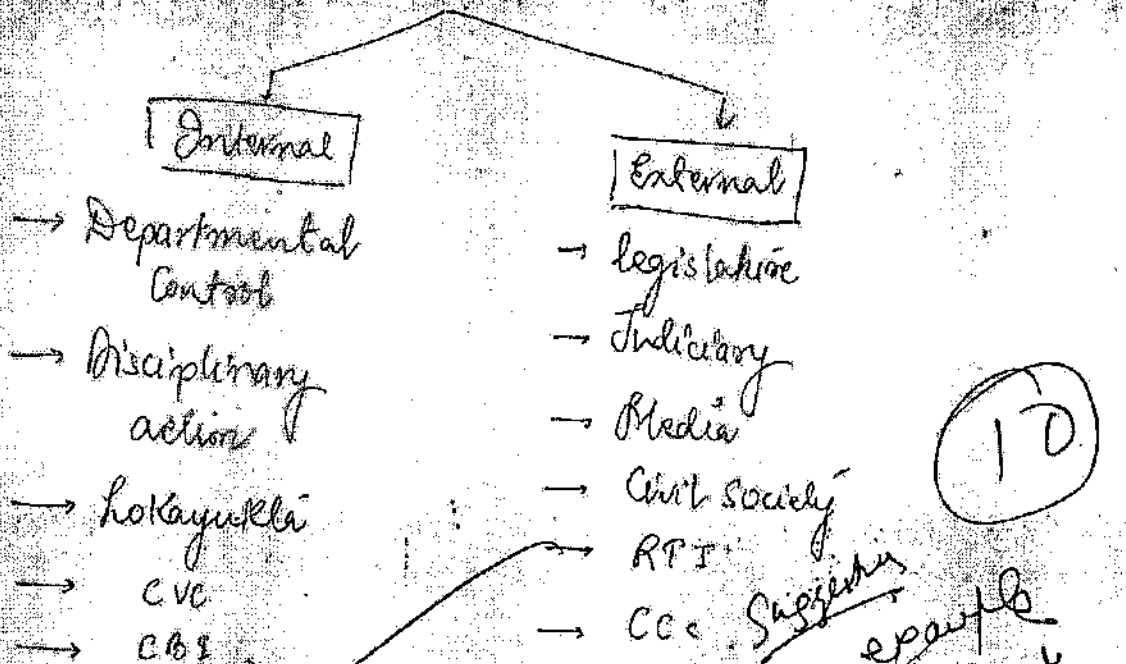 Internal
→ Departmental
Control
→ Disciplinary
action
→ Lokayukta
→ CVC
→ CBI
External
→ legislative
→ Judiciary
→ Media
→ Civil Society
→ RTI
→ CCC
10
Suggestion
example